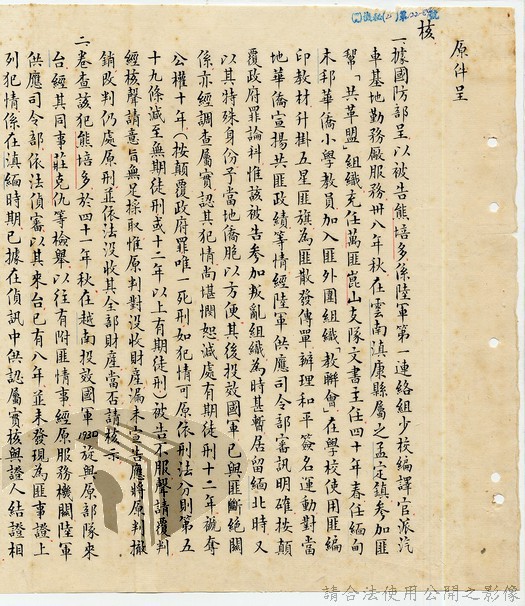 原件呈
核
一據國防部呈以被告熊培多係陸軍第一連絡組少校編譯官派汽
車基地勤務廠服務卅八年秋在雲南滇康縣屬之孟定鎮參加匪
幫「共革盟」組織充任萬匪崑山支隊文書主任四十年春任緬甸
木邦華僑小學教員加入匪外圍組織「教聯會」在學校使用匪編
印教材升掛五星匪旗為匪散發傳單辦理和平簽名運動對當
地華僑宣揚共匪政績等情經陸軍供應司令部審訊明確按顛
覆政府罪論科惟該被告參加叛亂組織為時甚暫居留緬北時又
以其特殊身份予當地僑胞以方便其後投效國軍已與匪斷絕關
係亦經調查屬實認其犯情尚堪憫恕減處有期徒刑十二年褫奪
公權十年(按顛覆政府罪唯一死刑如犯情可原依刑法分則第五
十九條減至無期徒刑或十二年以上有期徒刑)被告不服聲請覆判
經核聲請意旨無足採取惟原判對沒收財產漏未宣告應將原判撤
銷改判仍處原刑並依法沒收其全部財產當否請核示
二卷查該犯熊培多於四十一年秋在越南投效國軍1930旋與原部隊來
台經其同事莊克仇等檢舉以往有附匪情事經原服務機關陸軍
供應司令部依法偵審以其來台已有八年並未發現為匪事證上
列犯情係在滇緬時期已據在偵訊中供認屬實核與證人結證相
請合法使用公開之影像